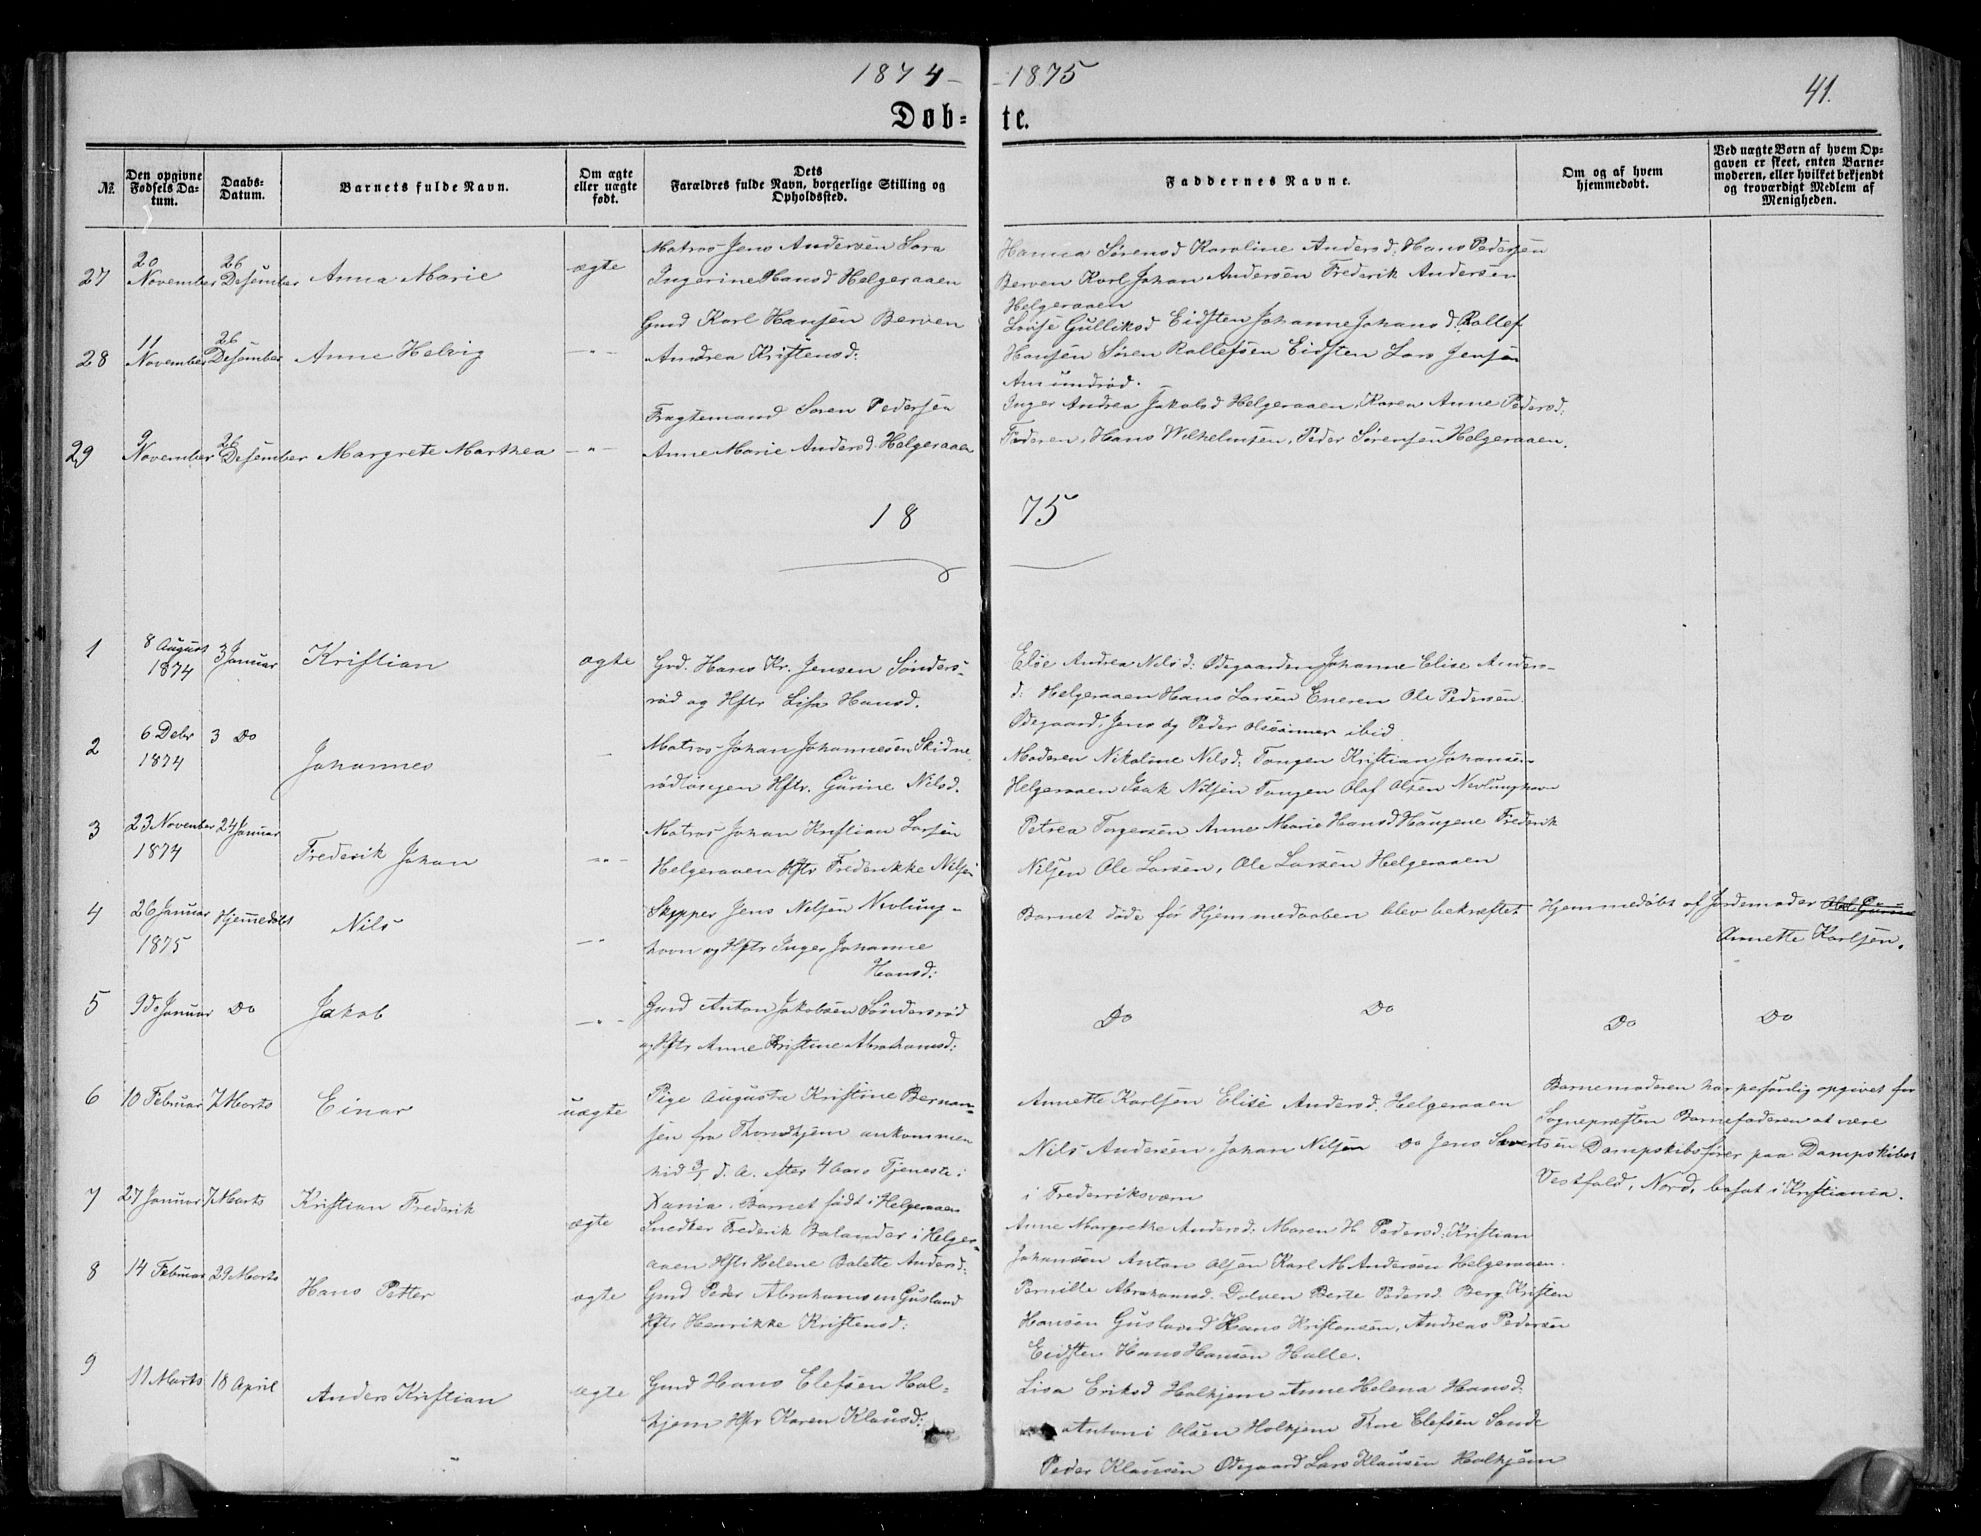 1874- -1875
41.
Døb= te.
№.
Den opgivne Fødsels Datum.
Daabs-Datum.
Barnets fulde Navn.
Om ægte eller uægte født.
Dets Forældres fulde Navn, borgerlige Stilling og Opholdssted.
Faddernes Navne.
Om og af hvem hjemmedøbt.
Ved uægte Børn af hvem Opgaven er skeet, enten Barnemoderen, eller hvilket bekjendt og troværdigt Medlem af Menigheden.
27
20 November
26 Desember
Anna Marie
ægte
Matros Jens Andersen Sara
Ingerine Hansd Helgeraaen
Hanna Sørensd Karoline Andersd: Hans Pedersen
Berven Karl Johan Andersen Frederik Andersen
Helgeraaen
28
11 November
26 Desember
Anne Helvig
-"-
Gmd Karl Hansen Berven
Andrea Kristensd:
Lovise Gulliksd Eidsten Johanne Johansd. Rollef
Hansen Søren Rollefsen Eidsten Lars Jensen
Amundrød.
29
9 November
26 Desember
Margrete Marthea
-"-
Fragtemand Søren Pedersen
Anne Marie Andersd. Helgeraaen
Inger Andrea Jakobsd Helgeraaen, Karen Anne Pedersd.
Faderen, Hans Wilhelmsen, Peder Sørensen Helgeraaen.
18 75
1
8 August 1874
3 Januar
Kristian
ægte
Grd. Hans Kr. Jensen Sønders-
rød og Hstr Lisa Hansd.
Else Andrea Nilsd: Ødegaarden Johanne Elise Anders-
d: Helgeraaen Hans Larsen Eneren Ole Pedersen
Ødegaard, Jens og Peder Olssønner ibid
2
6 Debr 1874
3 Do
Johannes
Matros Johan Johannesen Skidne
rødløngen Hstr. Gurine Nilsd.
Moderen Nikoline Nilsd. Tangen Kristian Johansen
Helgeraaen Isak Nilsen Tangen Olaf Olsen Nevlunghavn
3
23 November 1874
24 Januar
Frederik Johan
-"-
Matros Johan Kristian Larsen
Helgeraaen Hstr Frederikke Nilsen
Petrea Torgersen Anne Marie Hansd Haugene Frederik
Nilsen Ole Larsen, Ole Larsen Helgeraaen
4
26 Januar 1875
Hjemmedøbt
Nils
-"-
Skipper Jens Nilsen Nevlung-
havn og Hstr Inger Johanne
Hansd:
Barnet døde før Hjemmedaaben blev bekræftet
Hjemmedøbt af Jordemoder
Annette Karlsen.
5
9de Januar
Do
Jakob
-"-
Gmd Anton Jakobsen Søndersrød
og Hstr Anne Kristine Abrahamsd:
Do Do Do Do
6
10 Februar
7 Marts
Einar
uægte
Pige Augusta Kristine Bernan-
sen fra Throndhjem ankommen
hid 3/5 d. A. efter 4 Aars Tjeneste i
Xania. Barnet født i Helgeraaen
Annette Karlsen Elise Andersd. Helgeraaen
Nils Andersen, Johan Nilsen Do Jens Sivertsen
i Frederiksværn
Barnemoderen har personlig opgivet for
Sognepræsten Barnefaderen at være
Dampskibsfører paa Dampskibet
Vestfold, Nord, bosat i Kristiania.
7
27 Januar
7 Marts
Kristian Frederik
ægte
Snedker Frederik Balander i Helger-
aaen Hstr Helene Balette Andersd:
Anne Margrethe Andersd: Maren H Pedersd: Kristian
Johansen Anton Olsen Karl M Andersen Helgeraaen.
8
14 Februar
29 Marts
Hans Petter
ægte
Gmd Peder Abrahamsen Gusland
Hstr Henrikke Kristensd:
Pernille Abrahamsd. Dolven Berte Pedersd. Berg Kristen
Hansen Gusland Hans Kristensen, Andreas Pedersen
Eidsten Hans Hansen Halle.
9
11 Marts
18 April
Anders Kristian
ægte
Gmd Hans Elefsen Hol-
hjem Hstr Karen Klausd:
Lisa Eriksd Holhjem Anne Helena Hansd.
Antoni Olsen Holhjem Thore Elefsen Sande
Peder Klausen Ødegaard Lars Klausen Holhjem